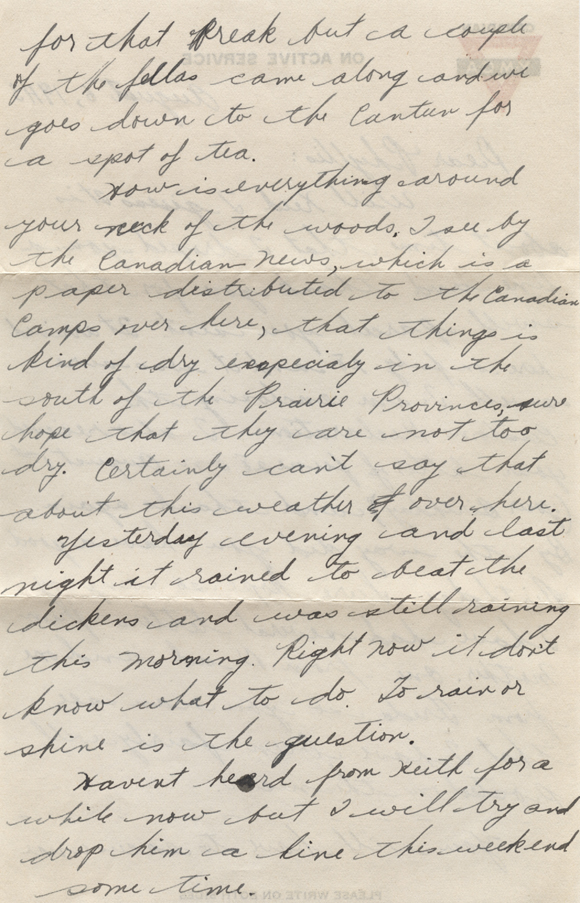 for that break but a couple
of the fellas came along and we
goes down to the Canteen for
a spot of tea.
How is everything around
your neck of the woods. I see by
the Canadian News, which is a
paper distributed to the Canadian
Camps over here, that things is
kind of dry exspecialy in the
south of the Prairie Provinces, sure
hope that they are not too
dry. Certainly can't say that
about this weather over here.
Yesterday evening and last
night it rained to beat the
dickens and was still raining
this morning. Right now it don't
know what to do. To rain or
shine is the question.
Havent heard from Keith for a
while now but I will try and
drop him a line this weekend
some time.
ON ACTIVE SERVICE
PLEASE WRITE ON BOTH SIDES